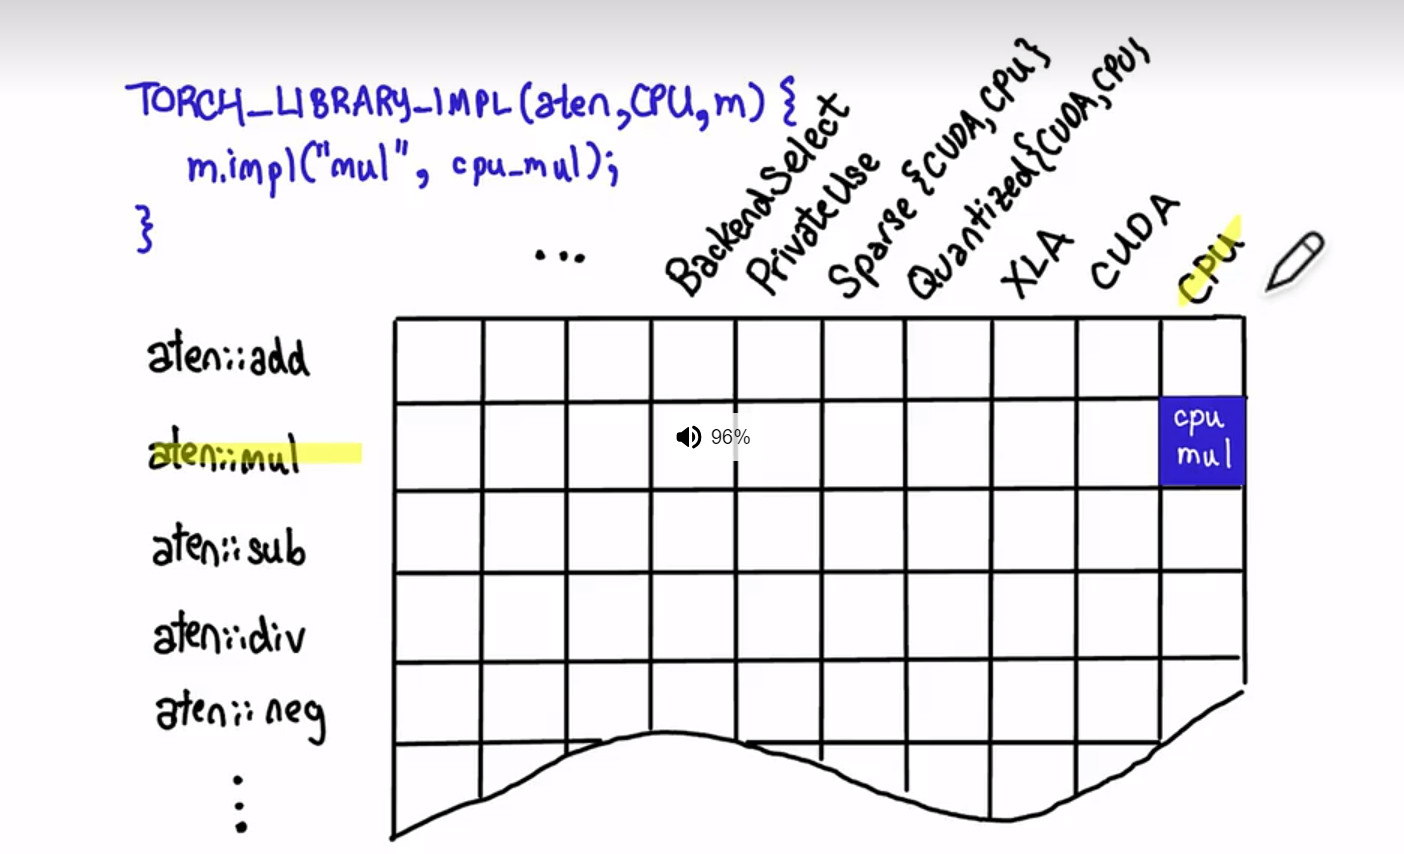 TORCH_LIBRARY_IMPL(aten,CPU,m) {
m.impl("mul", cpu_mul);
}
...
BackendSelect
PrivateUse
Sparse {CUDA,CPU}
Quantized{CUDA,CPU}
XLA
CUDA
CPU
aten::add
aten::mul
cpu
mul
96%
aten::sub
aten::div
aten::neg
⋮